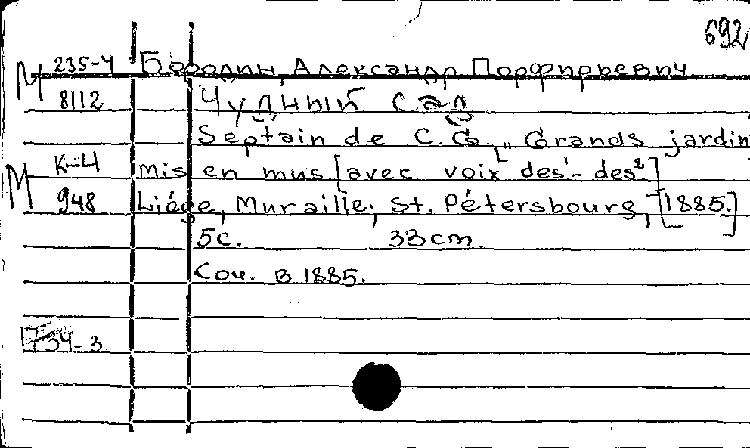 692
М 235-4 Бородин, Александр Порфирьевич
8112 Чудный сад
Septain de C. G. „Grands jardin
Mis en mus [avec voix des¹-des²]
М 948 Liége, Muraille; St. Pétersbourg, [1885.]
5c. 33cm.
Соч. в 1885.
734-3